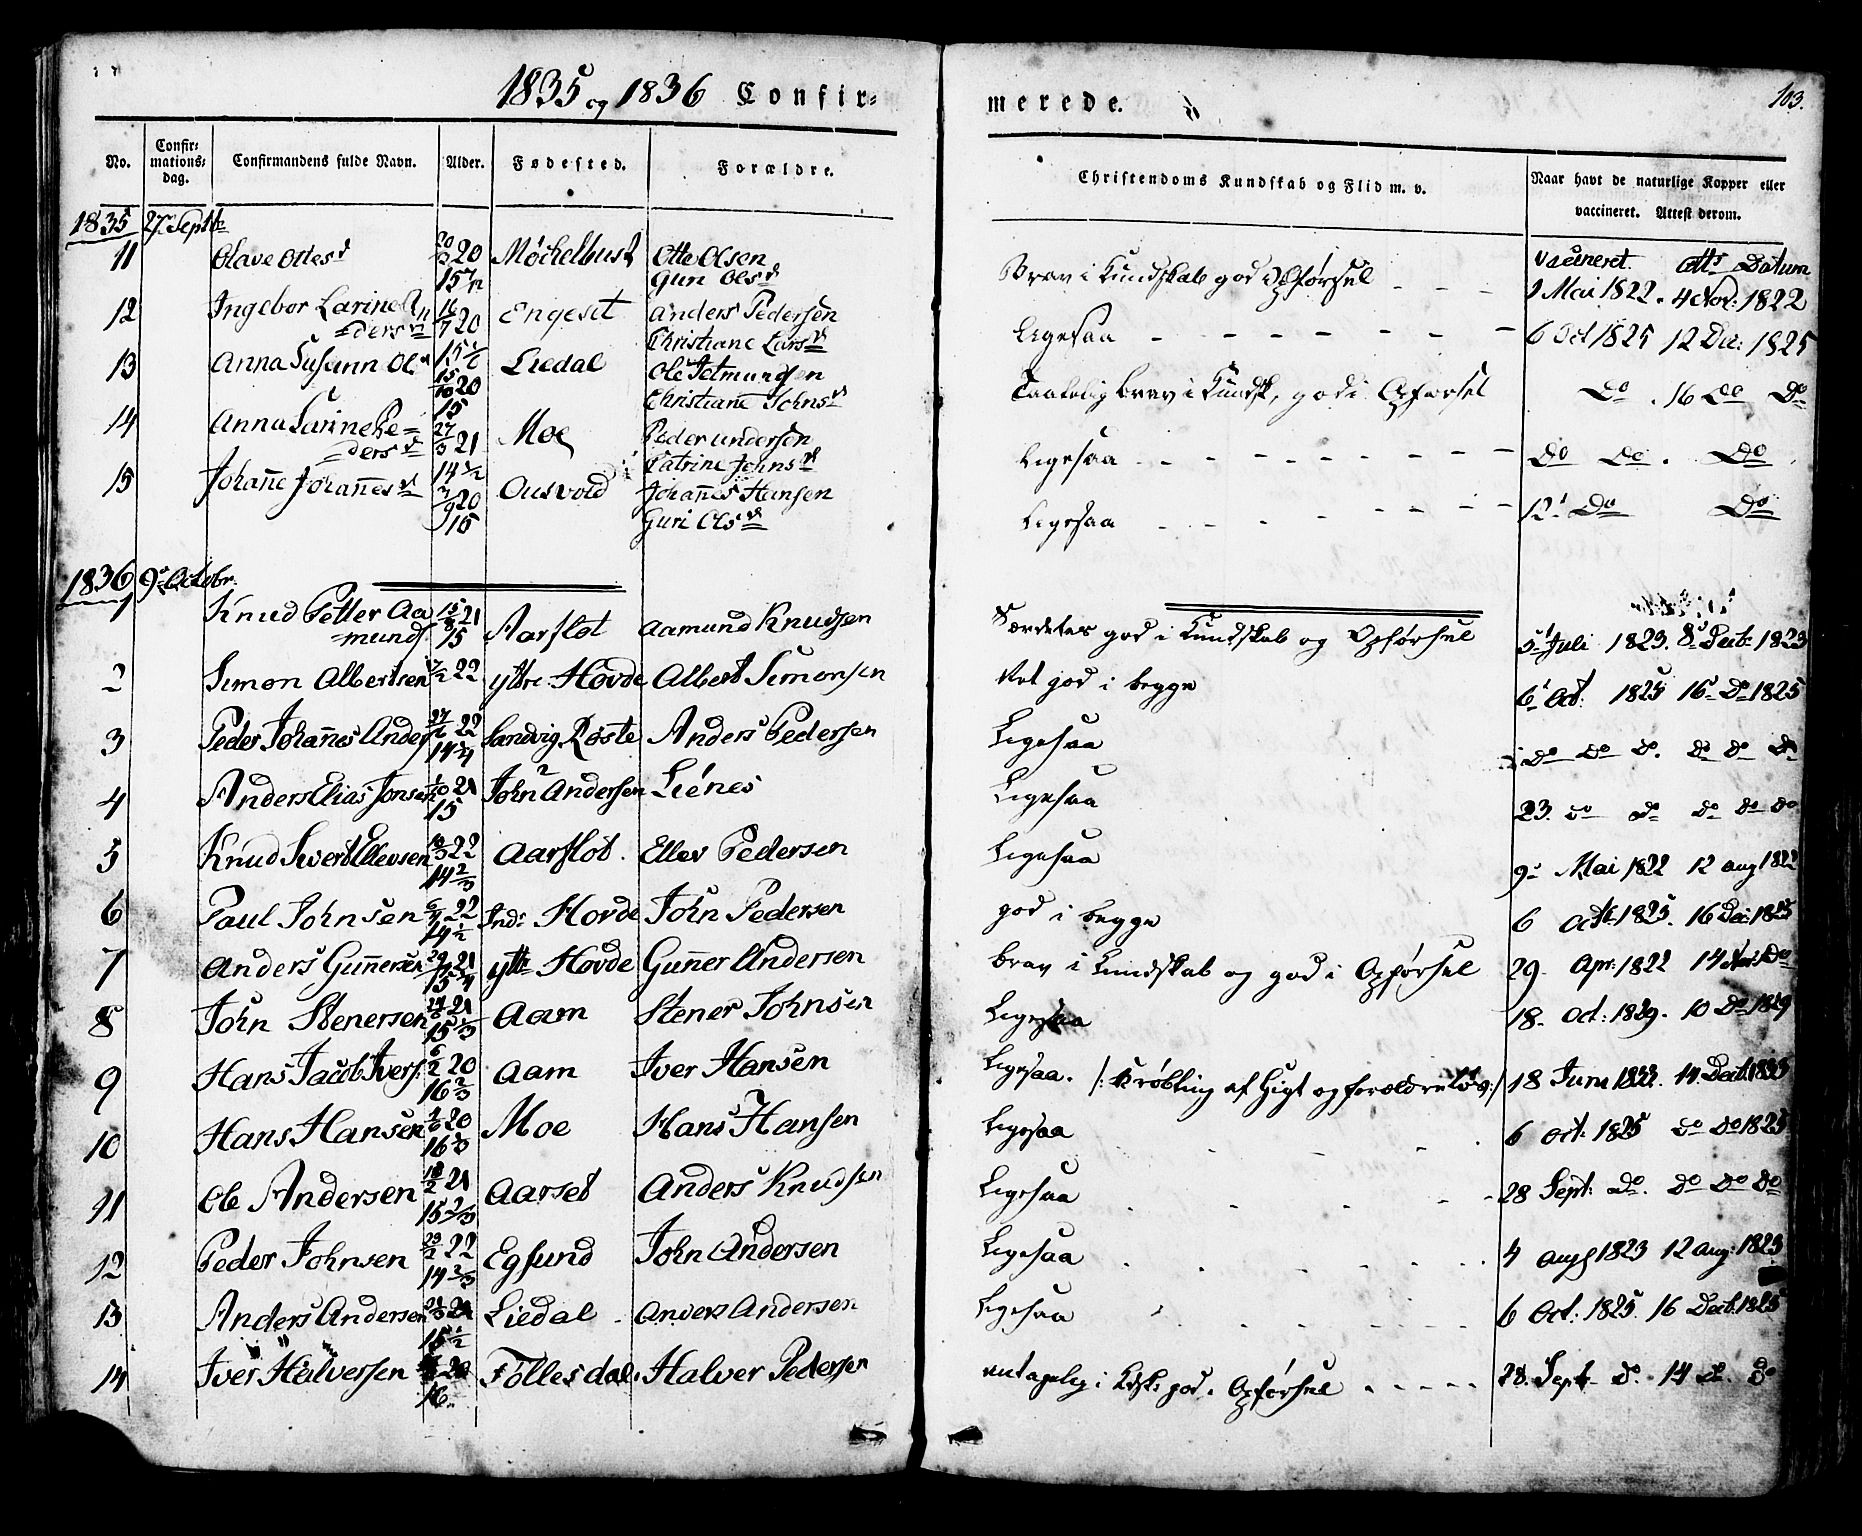 1835 og 1836 Confir-
merede.
103.
No.
Confir-
mations-
dag.
Confirmandens fulde Navn.
Alder.
Fødested.
Forældre.
Christendoms Kundskab og Flid m. v.
Naar havt de naturlige Kopper eller
vaccineret. Attest derom.
1835 27 Septbr
vaccineret. Datum
11 Olave Ottesd 20 Otte Olsen Brav i Kundskab god i Opførsel
15 Guri Olsd 9 Mai 1822. 4 Nov: 1822
12 Ingebor Larine An 16/7 20 Engeset Anders Pedersen Ligesaa 6 Oct 1825 12 De: 1825
=dersd Christiane Larsd
13 Anna Susann Ol Liedal Ole Taalelig brav i Kundsk, god i Opførsel Do . 16 Do Do
15/10 20 Christiane Johnsd
15
14 Anna Larine Pe= 27/3 21 Moe Peder Andersen Ligesaa Do Do . Do
dersd 14 1/2 Catrine Johnsd
15 Johanne Johannesd 20 Ousvold Johannes Hansen Ligesaa 12 Do Do
15 Guri Olsd
1836 9 Octobr.
1 Knud Petter Aa 15/8 21 Aarflot Aamund Knudsen Særdeles god i Kundskab og Opførsel 5 Juli 1823. 8 Decb: 1823
=munds. 15
2 Simon Albertsen 22 yttre Hovde Albert Simonsen Ret god i begge 6 Oct: 1825 16 Do 1825
3 Peder Johannes Anders 22 Sandvig Røste Anders Pedersen Ligesaa Do Do Do. Do Do Do
14 3/4
4 Anders Elias Jonsen 1/10 21 John Andersen Liénes Ligesaa 23. Do Do Do Do Do
15
5 Knud Sivert Ellevsen 22 Aarflot. Ellev Pedersen Ligesaa 9 Mai 1822 12 aug 1822
14 2/3
6 Paul Johnsen 6/4 22 Ind: Hovde John Pedersen god i begge 6 Octb 1825. 16 Dec: 1825
14 1/2
7 Anders Gunnersen 21 ytt Hovde Gunner Andersen brav i Kundskab og god i Opførsel 29. Apr: 1822 14 Do
15 3/4
8 John Stenersen 21 Aam Stener Johnsen Ligesaa 18. Oct: 1829. 10 Do 1829
15 1/3
9 Hans Jacob Ivers. 6/2 20 Aam Iver Hansen Ligesaa. /: Krøbling af Gigt og forældreløs :/ 18 Juni 14 Decb.
16 2/3
10 Hans Hansen 20 Moe Hans Hansen Ligesaa 6 Oct: 1825 Do Do 1825
16
11 Ole Andersen 21 Aarset Anders Knudsen Ligesaa 28 Sept: Do. Do Do Do
15 2/3
12 Peder Johnsen 23/2 22 Egsund John Andersen Ligesaa 4 Aug 1823 12 Aug: 1823
14 2/3
13 Anders Andersen 21 Liedal Anders Andersen Ligesaa 6 Oct: 1825. 16 Decb: 1825
15 1/2
14 Iver Halversen 20 Follesdal. Halver Pedersen antagelig i Kdsk: god i Opførsel 28. Sept Do. 14 Do. Do
16.